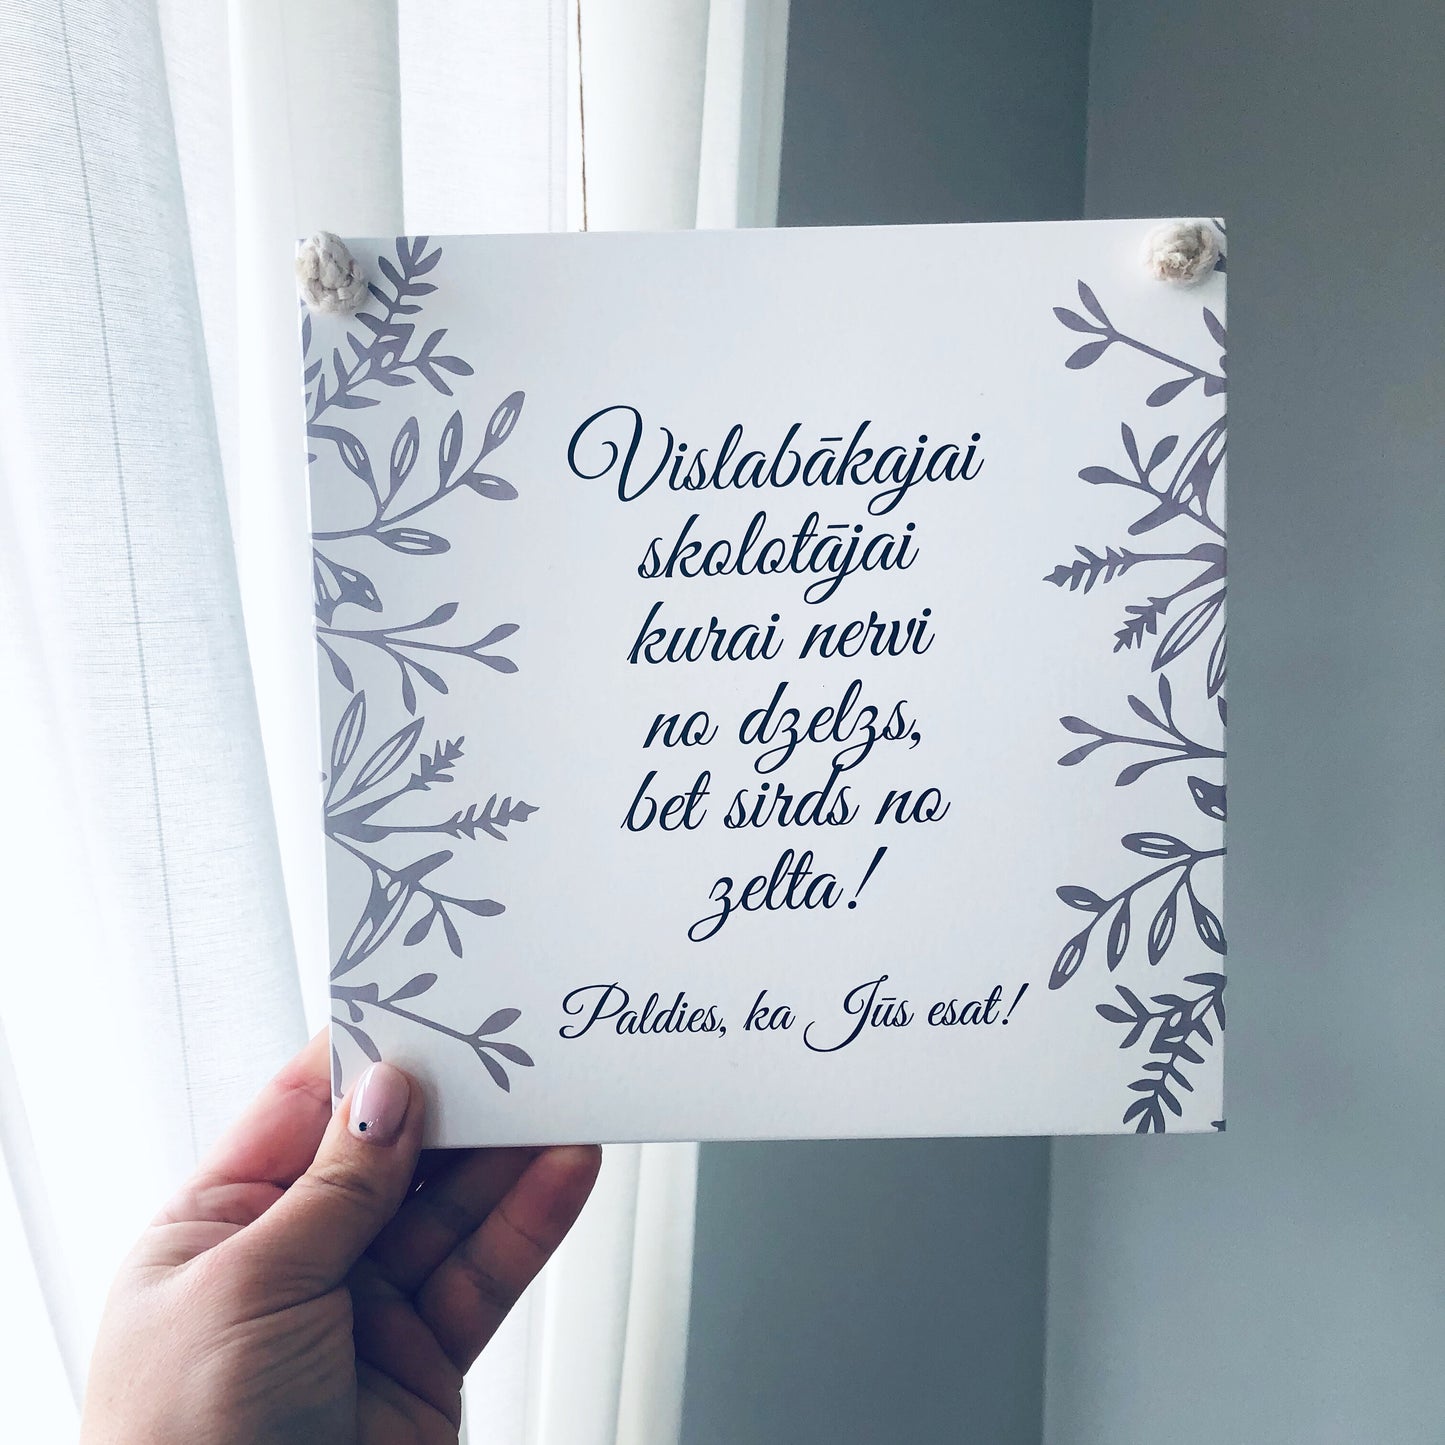 Vislabākajai
skolotājai
kurai nervi
no dzelzs,
bet sirds no
zelta!
Paldies, ka Jūs esat!